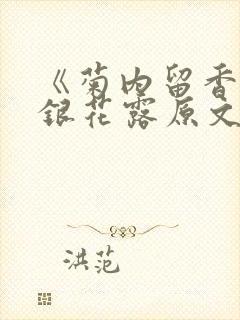 《菊内留香
銀花露原文
洪范